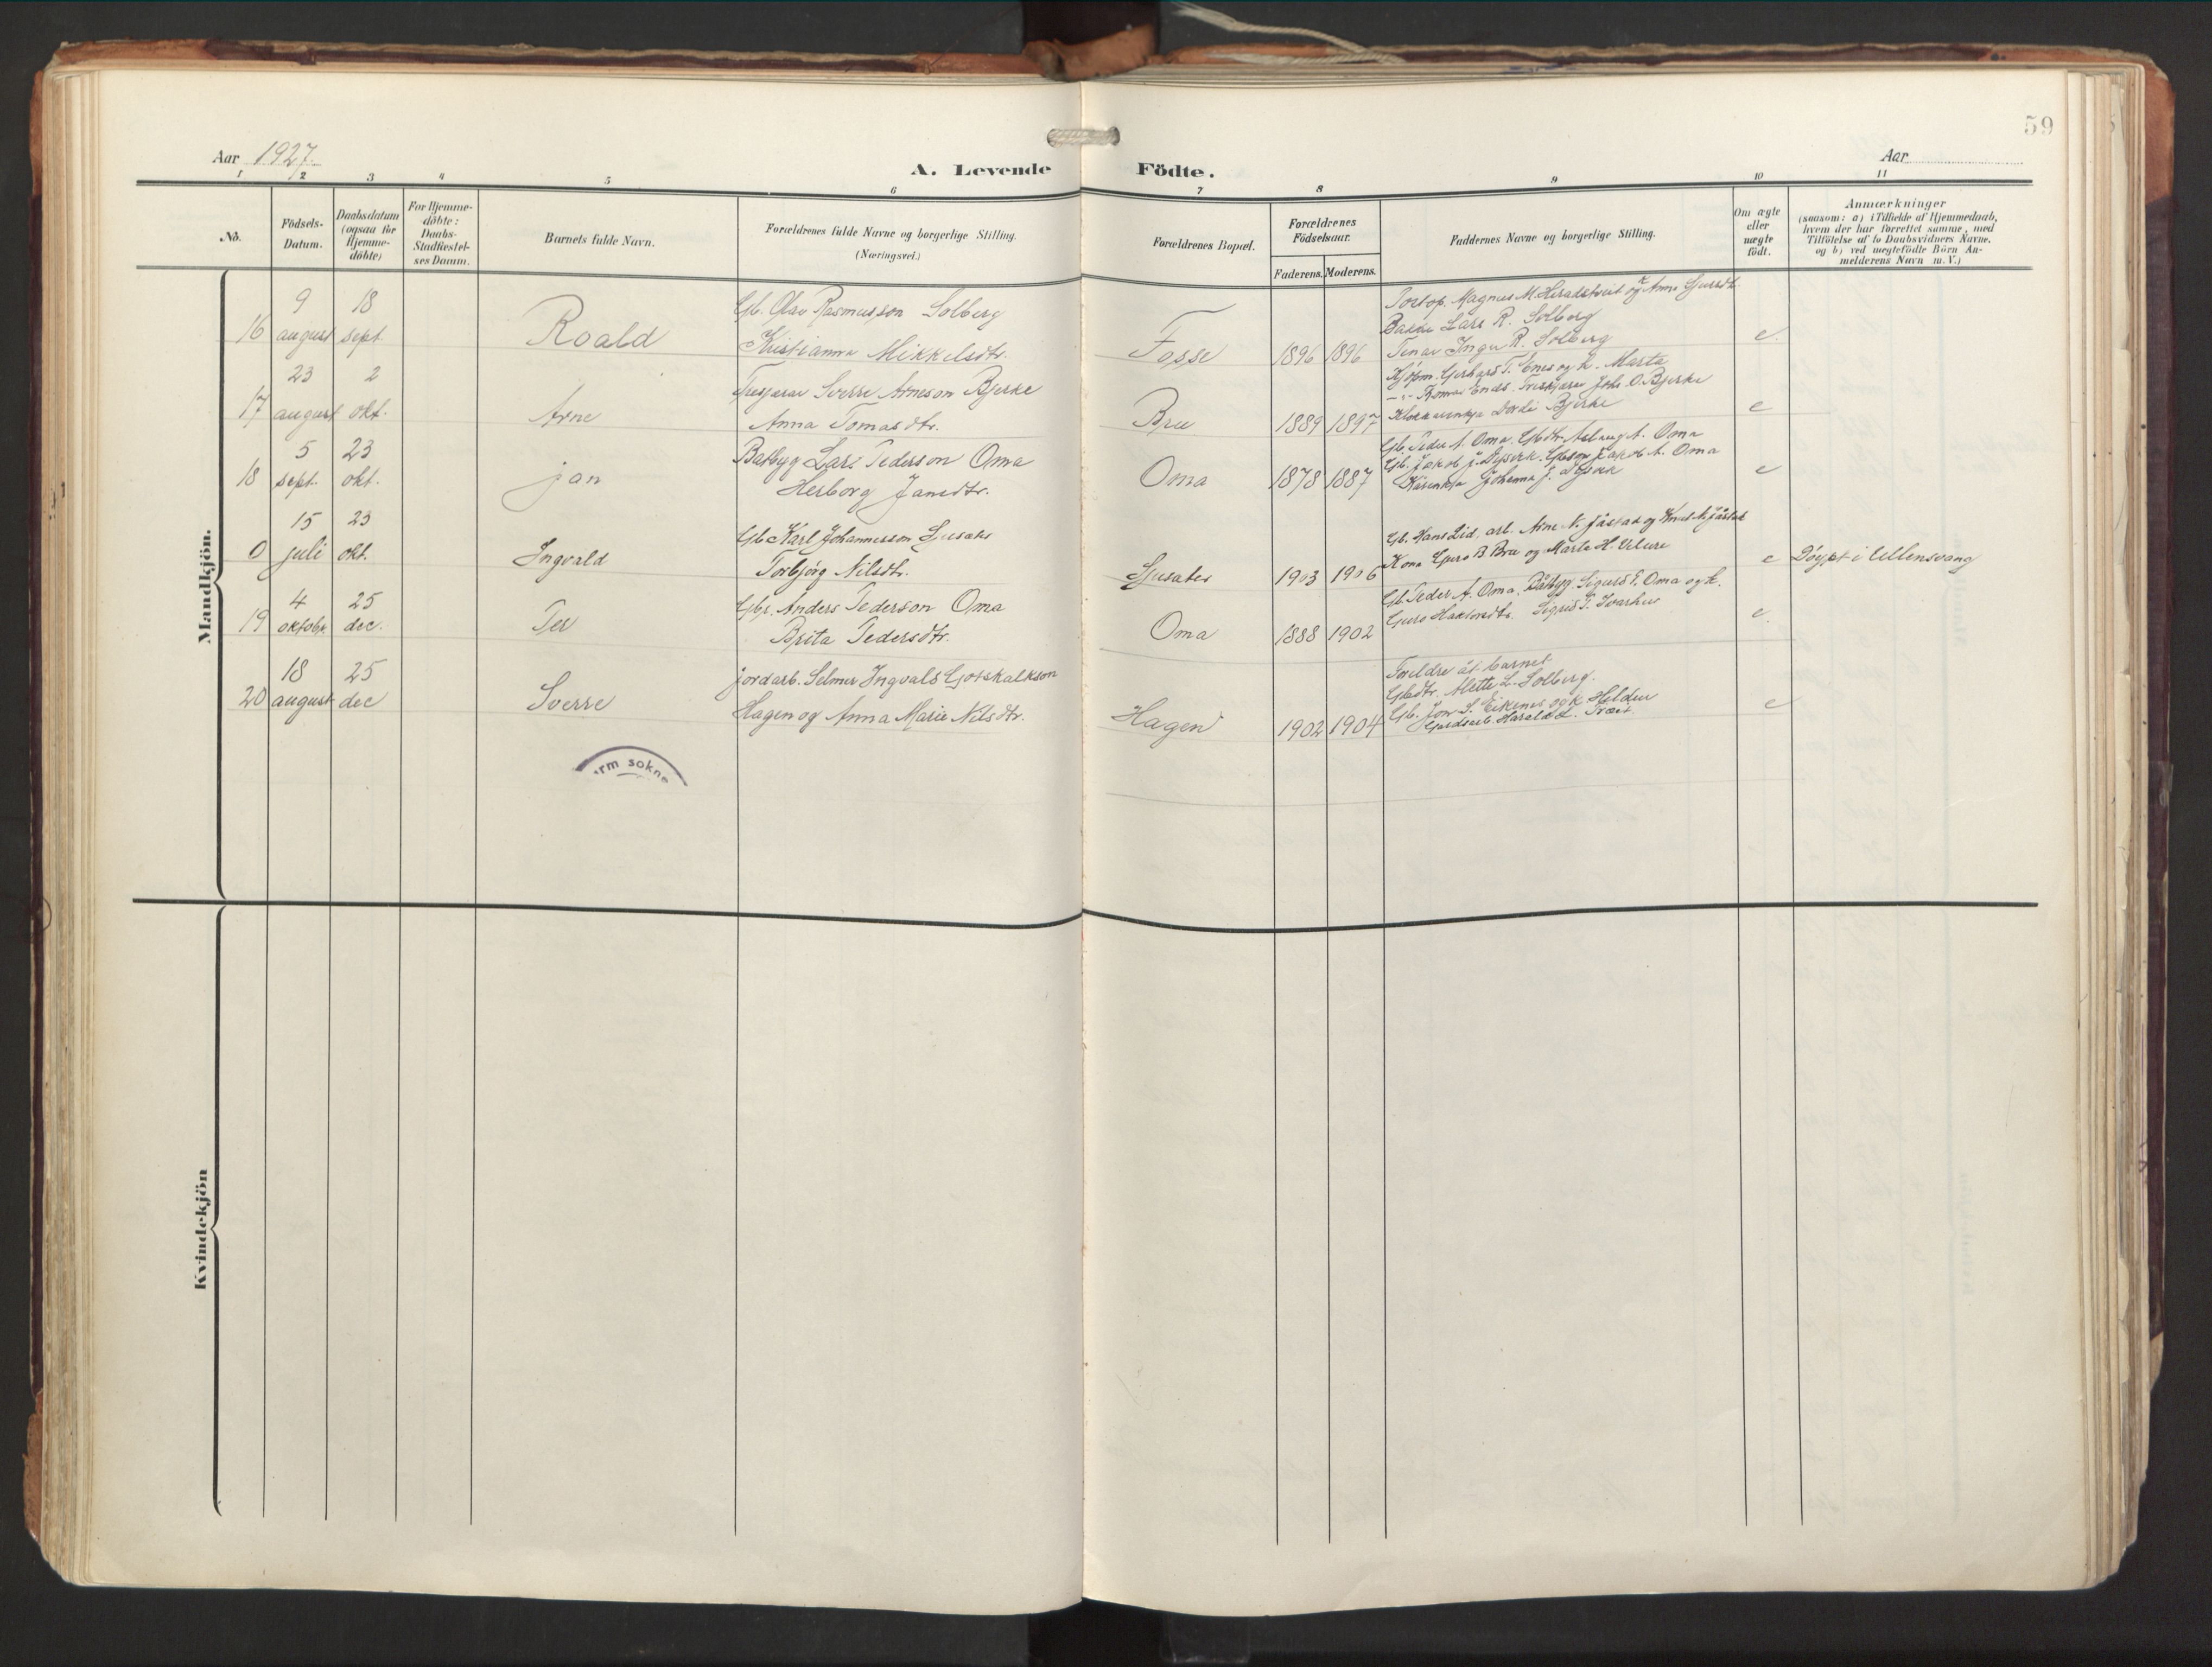 59
Aar 1927.
A. Levende Födte.
Aar
1 2 3 4 5 6 7 8 9 10 11
No.
Födsels-Datum.
Daabsdatum (ogsaa for Hjemme-döbte)
For Hjemme-döbte: Daabs-Stadfæstel-ses Datum.
Barnets fulde Navn.
Forældrenes fulde Navne og borgerlige Stilling.
(Næringsvei.)
Forældrenes Bopæl.
Forældrenes Födselsaar.
Faderens. Moderens.
Faddernes Navne og borgerlige Stilling.
Om ægte eller uægte födt.
Anmærkninger
(saasom: a) i Tilfælde af Hjemmedaab,
hvem der har forrettet samme, med
Tilföielse af to Daabsvidners Navne,
og b) ved uægtefödte Börn An-
melderens Navn m. V.)
Mandkjön.
16 9 august 18 sept. Roald
Gb. Olav Rasmusson Solberg
Kristianna Mikkelsdtr.
Fosse 1896 1896
Magnus M. Heradstveit og Anna
Lars R. Solberg
Tenar Inga R. Solberg
e.
17 23 august 2 okt. Arne
Sverre Arneson Bjerke
Anna Tomasdtr.
Bru 1889 1897
Kjöpm. Gerhard T. Enes og k. Marta
Johs. O. Bjerke
Bjerke
e
18 5 sept. 23 okt. jan
Batbyg Lars Pederson Oma
Herborg Jansdtr.
Oma 1878 1887
Gb. Peder A. Oma. Gbdtr. Aslaug A. Oma
Gb. Jakob J. Gbson Jakob A. Oma
Johanna J.
e
0 15 juli 23 okt. Ingvald
Gb. Karl Johannesson
Torbjørg Nilsdtr.
1903 1906
Gb. Hans Lid, arb. Arne N. Jåstad og Knut Jåstad
Kona Guro B. Bru og Marta H. Velure
e Döypt i Ullensvang
19 4 oktobr. 25 dec. Per
Gbr. Anders Pederson Oma
Brita Pedersdtr.
Oma 1888 1902
Gb. Peder A. Oma. Båtbyg. Sigurd E. Oma og k.
Guro Sigrid T.
e.
20 18 august 25 dec Sverre
jordarb. Selmer Ingvald Gotskalkson
Hagen og Anna Marie Nilsdtr.
Hagen 1902 1904
Foreldre åt barnet.
Gbdtr. Alette L. Solberg.
Gb. Jon S. Eikenes og k. Heldur
Gardsarb. Harald L.
e
rm sokne
Kvindekjön